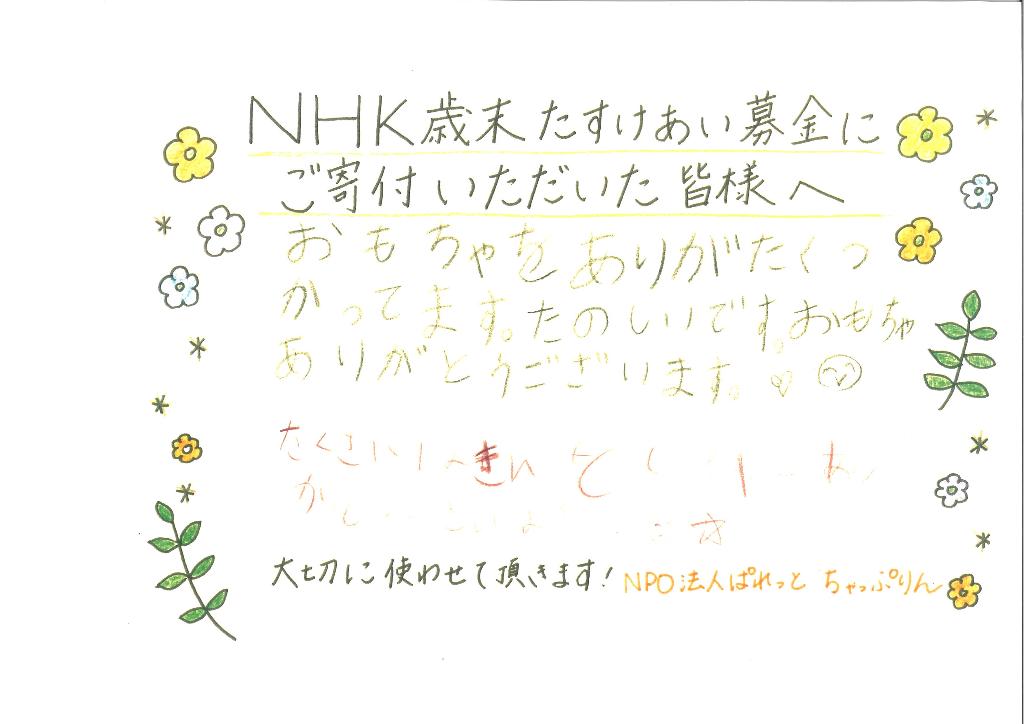 NHK歳末たすけあい募金に
ご寄付いただいた皆様へ
おもちゃをありがたくつ
かってます。たのしいです。おもちゃ
ありがとうございます。♡
大切に使わせて頂きます！
NPO法人ぱれっと ちゃっぷりん